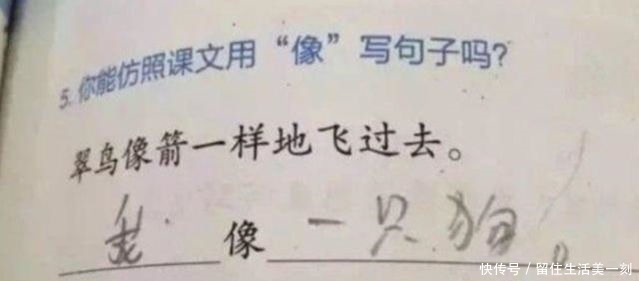 5.你能仿照课文用“像”写句子吗?
翠鸟像箭一样地飞过去。
像一只狗。
快传号/留住生活美一刻